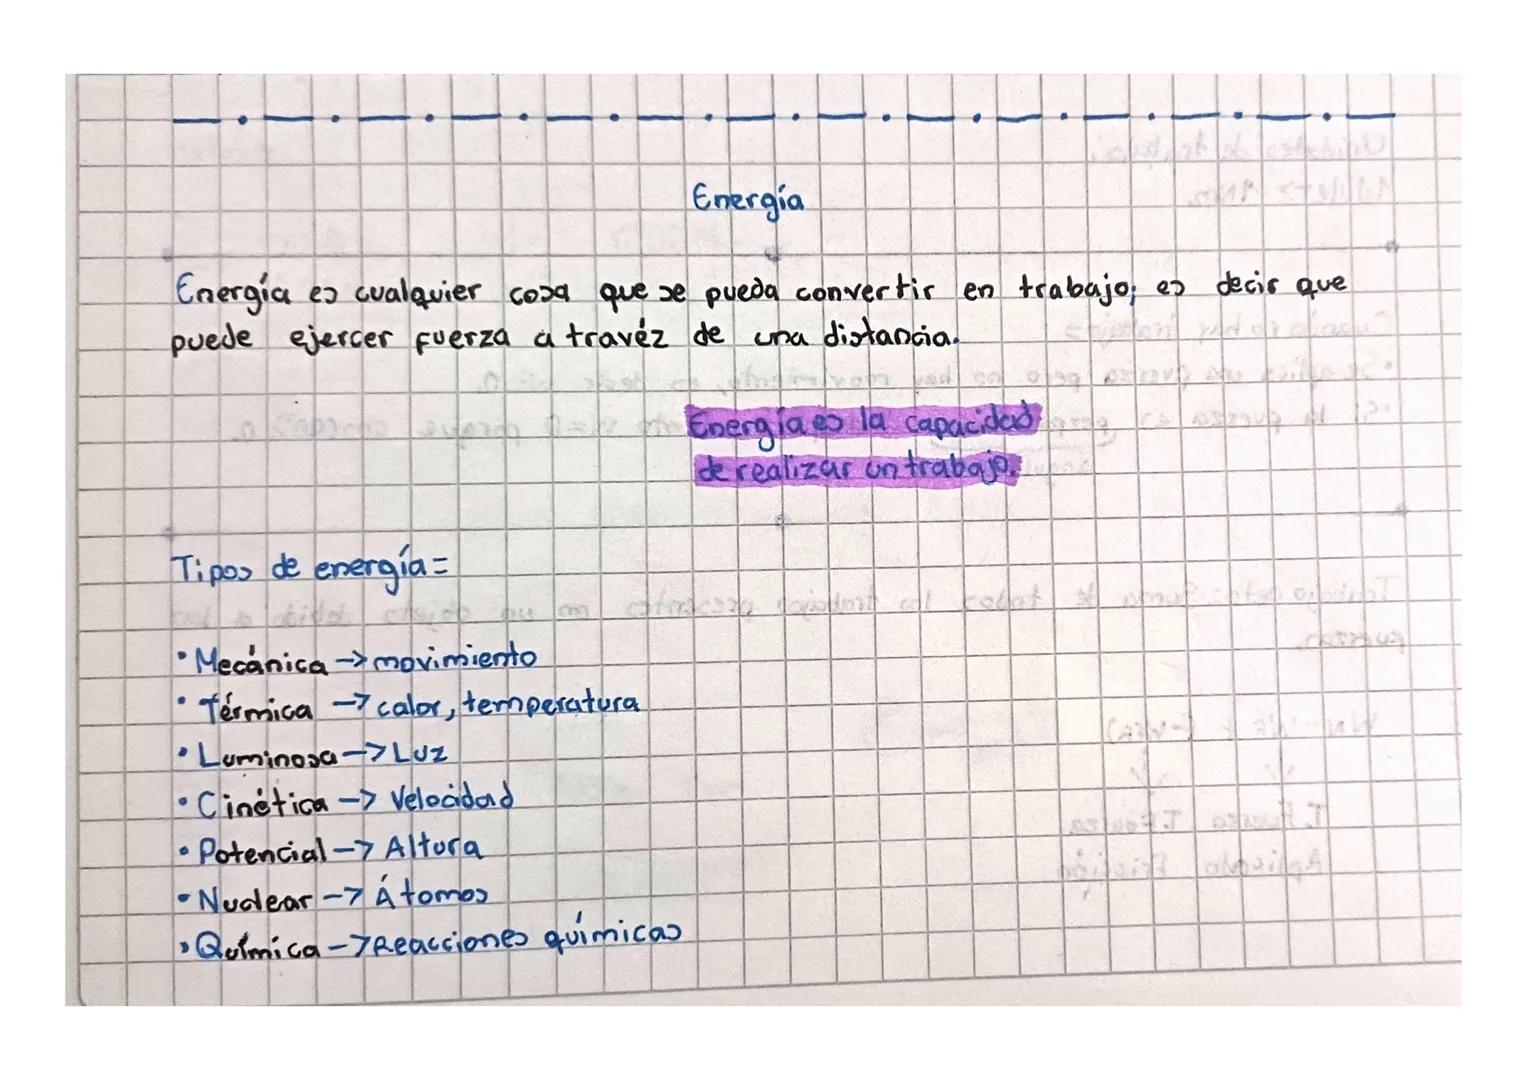 Energía
Energía es cualquier cosa que se pueda convertir en trabajo; es decir que
puede ejercer fuerza a travéz de una distancia.
Energía es la capacidad
de realizar un trabajo.
Tipos de energía=
• Mecánica -> movimiento
• Térmica -> calor, temperatura
• Luminosa -> Luz
• Cinética -> Velocidad
• Potencial -> Altura
• Nuclear -> Átomos
• Química -> Reacciones químicas